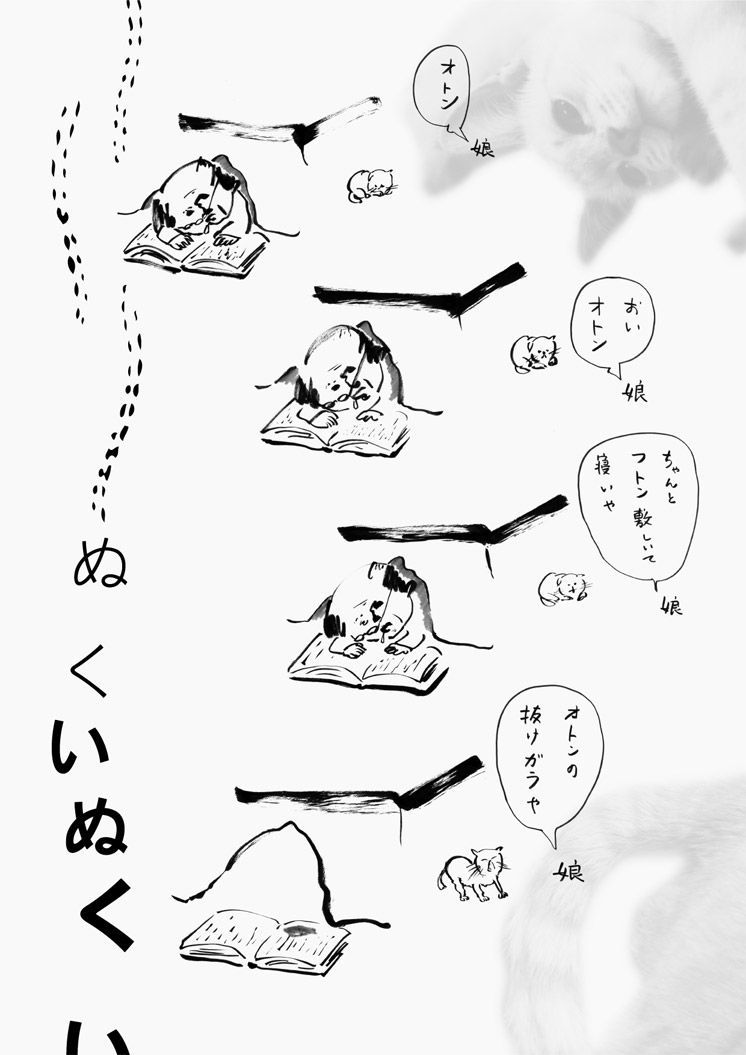 オトン
娘
おい
オトン
娘
ちゃんと
フトン敷しいて
寝いや
娘
オトンの
抜けガラや
娘
ぬくいぬくい